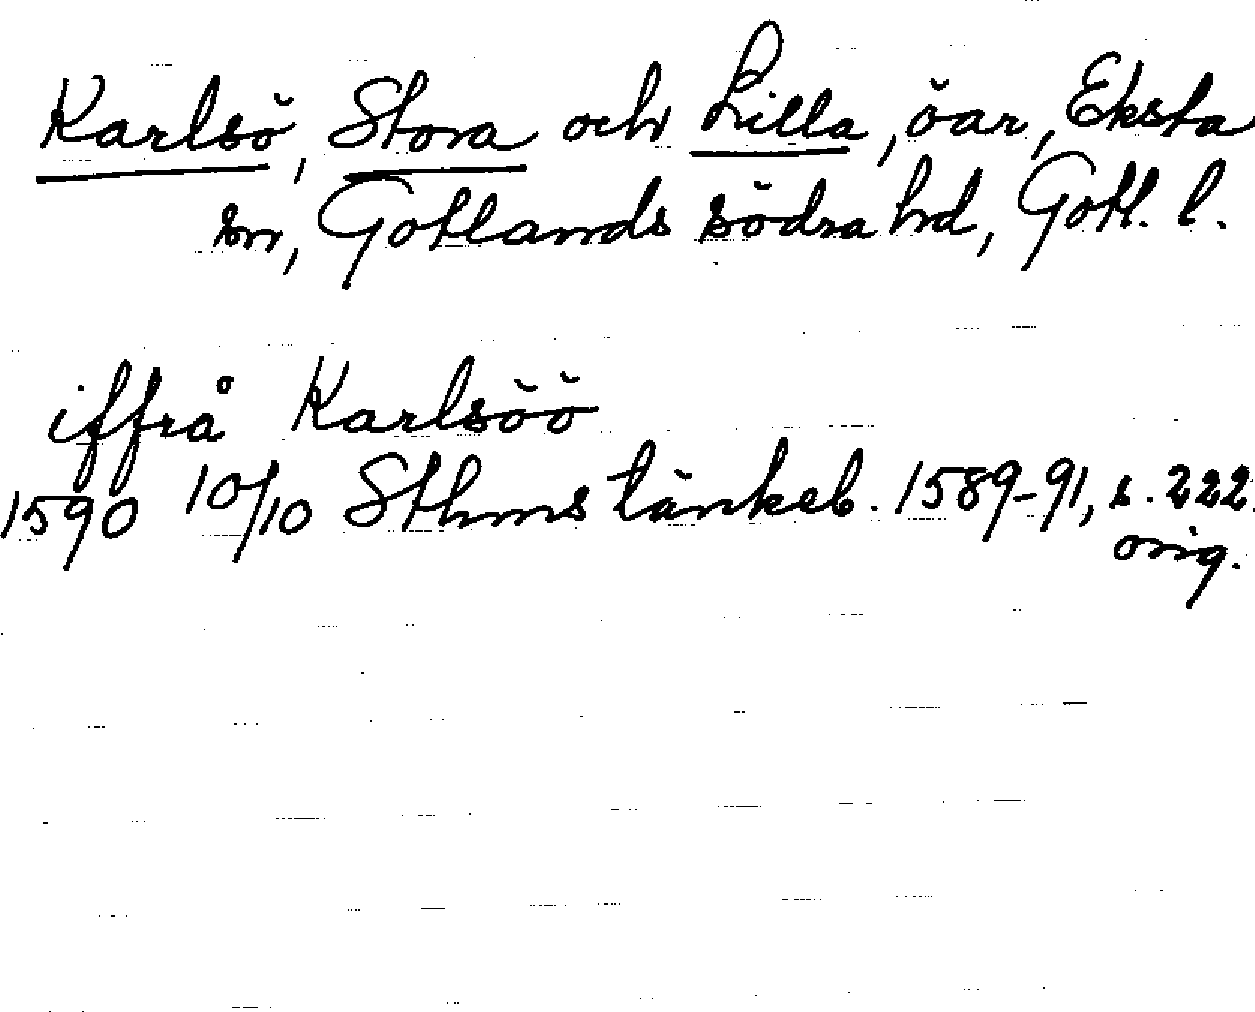 Karlsö, Stora och Lilla, öar, Eksta
sn, Gotlands södra hd, Gotl. l.
iffrå Karlsöö
1590 10/10 Sthms tänkeb. 1589-91, s. 222
orig.